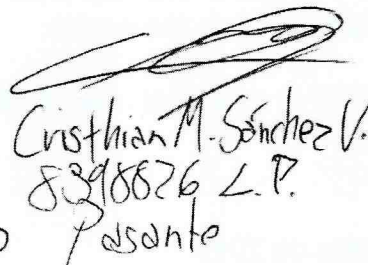 Cristhian M. Sánchez V.
8398826 L.P.
Pasante